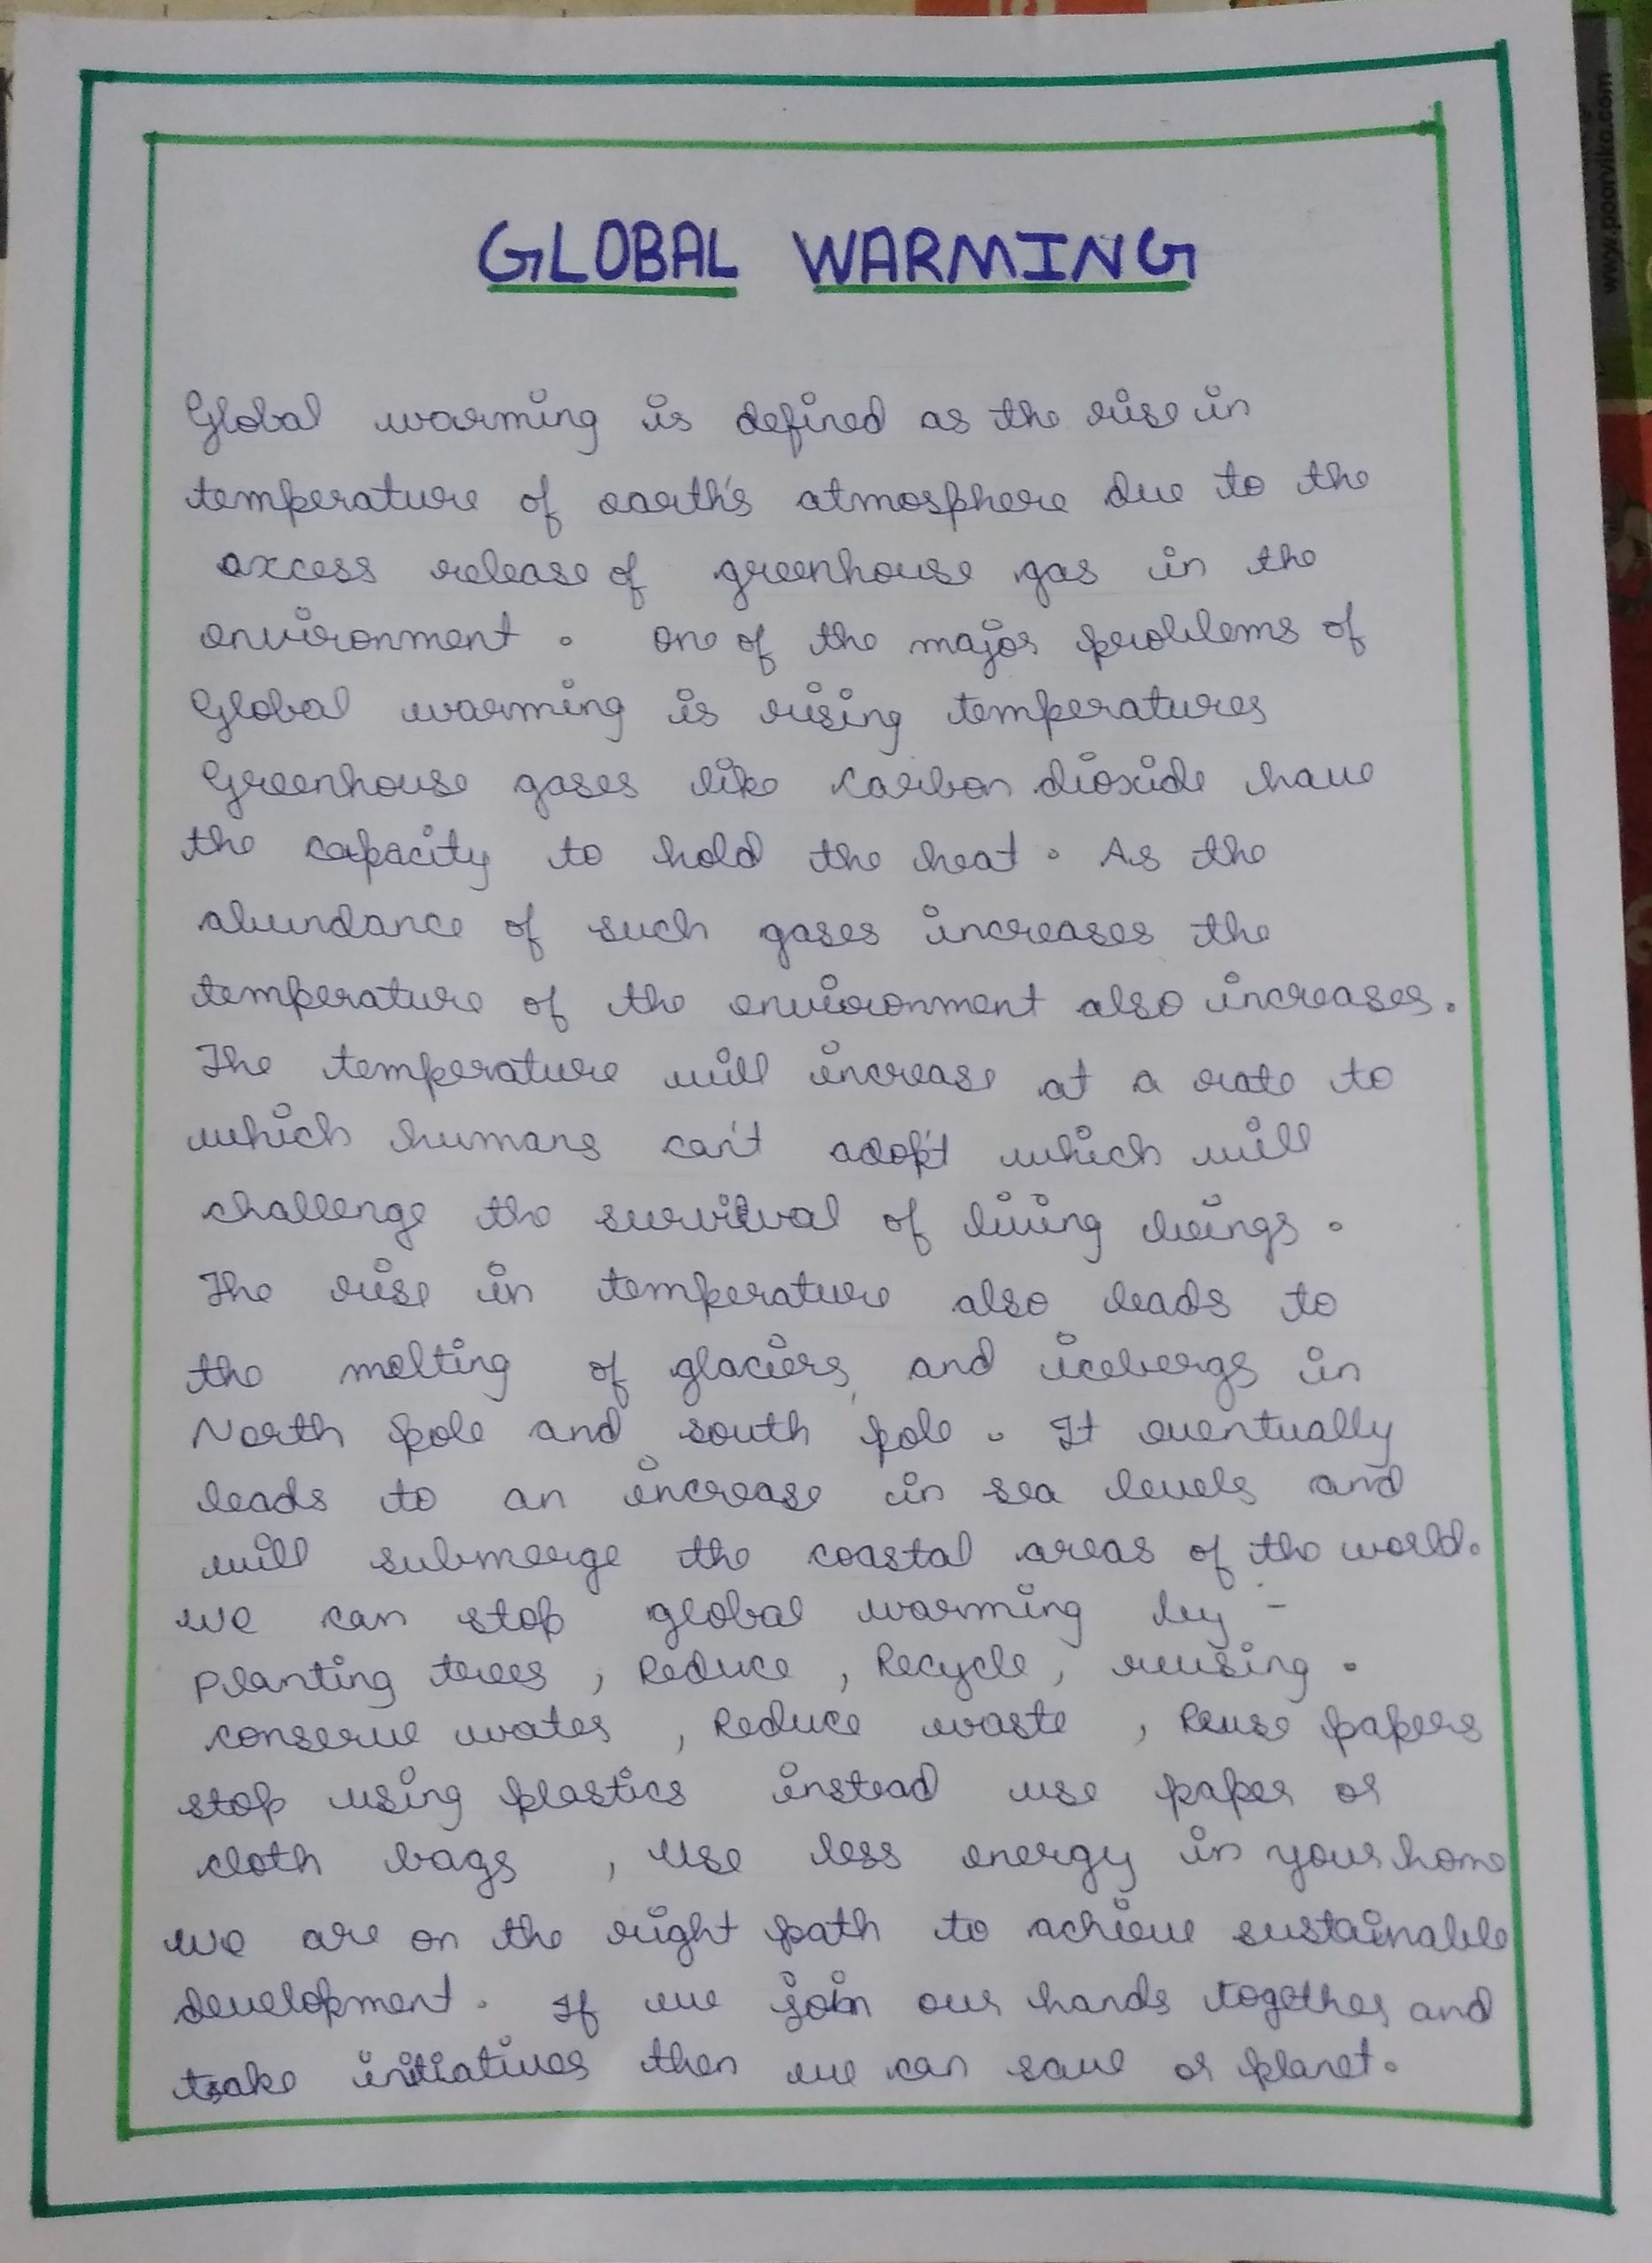 GLOBAL WARMING
Global warming is defined as the rise in
temperature of earth's atmosphere due to the
excess release of greenhouse gas in the
environment. One of the major problems of
Global warming is rising temperatures
Greenhouse gases like carbon dioxide have
the capacity to hold the heat. As the
abundance of such gases increases the
temperature of the environment also increases.
The temperature will increase at a rate to
which humans can't adopt which will
challenge the survival of living beings.
The rise in temperature also leads to
the melting of glaciers and icebergs in
North pole and south pole. It eventually
leads to an increase in sea levels and
will submerge the coastal areas of the world.
we can stop global warming by -
Planting trees, Reduce, Recycle, reusing.
conserve water, Reduce waste, Reuse papers
stop using plastics instead use paper or
cloth bags, Use less energy in your home
we are on the right path to achieve sustainable
development. If we join our hands together and
take initiatives then we can save or planet.
www.poorvika.com